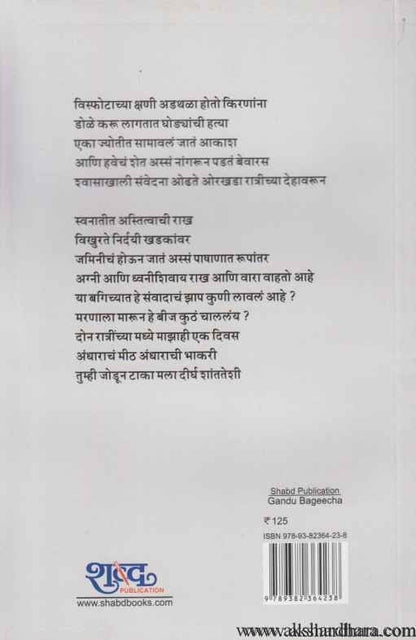 विस्फोटाच्या क्षणी अडथळा होतो किरणांना
डोळे करू लागतात घोड्यांची हत्या
एका ज्योतीत सामावलं जातं आकाश
आणि हवेचं शेत अस्सं नांगरून पडतं बेवारस
श्वासाखाली संवेदना ओढते ओरखडा रात्रीच्या देहावरून
स्वनातीत अस्तित्वाची राख
विखुरते निर्दयी खडकांवर
जमिनीचं होऊन जातं अस्सं पाषाणात रूपांतर
अग्नी आणि ध्वनीशिवाय राख आणि वारा वाहतो आहे
या बगिच्यात हे संवादाचं झाप कुणी लावलं आहे ?
मरणाला मारून हे बीज कुठं चाललंय ?
दोन रात्रींच्या मध्ये माझाही एक दिवस
अंधाराचं मीठ अंधाराची भाकरी
तुम्ही जोडून टाका मला दीर्घ शांततेशी
Shabd Publication
Gandu Bageecha
₹ 125
ISBN 978-93-82364-23-8
9 789382 364238
शब्द
PUBLICATION
www.shabdbooks.com
www.akshardhara.com